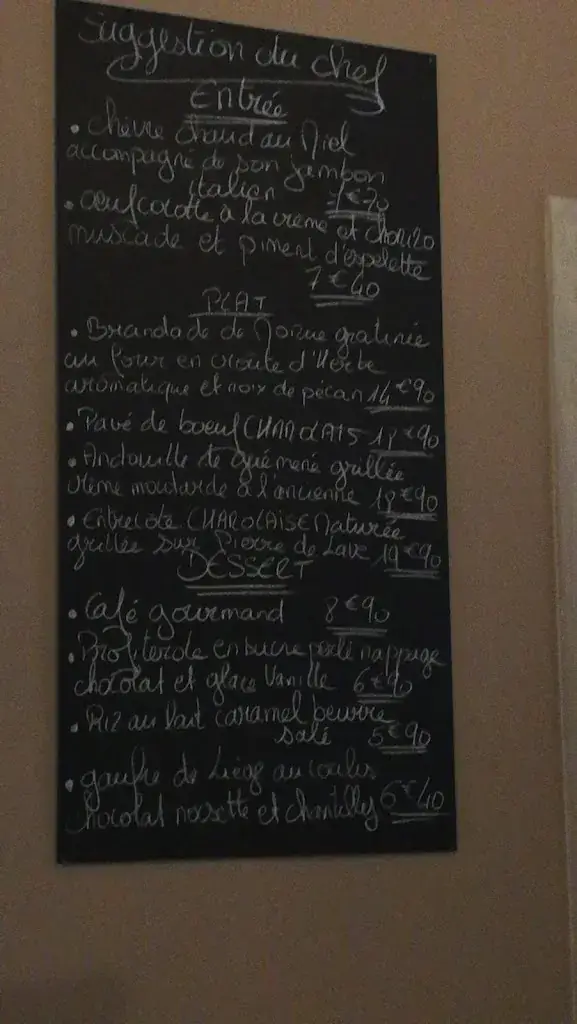 Suggestion du chef
Entrée
• chèvre chaud au Miel
accompagné de son jambon
italien 7€70
• œuf cocotte à la crème et chorizo
muscade et piment d'espelette
7€40
PLAT
• Brandade de Morue gratinée
au four en croute d'Herbe
aromatique et noix de pécan 14€90
• Pavé de boeuf CHAROLAIS €90
• Andouille de guémené grillée
crème moutarde à l'ancienne €90
• Entrecôte CHAROLAISE maturée
grillée sur Pierre de Lave 19€90
DESSERT
• Café gourmand 8€90
• Profiterole en sucre perlé nappage
chocolat et glace Vanille 6€90
• Riz au lait caramel beurre
salé 5€90
• gaufre de Liège au coulis
chocolat noisette et chantilly 6€40